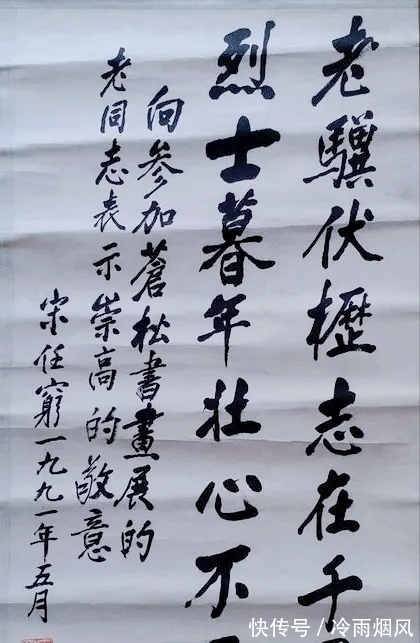 老驥伏櫪志在千
烈士暮年壮心不
向参加蒼松書畫展的
老同志表示崇高的敬意
宋任窮一九九一年五月
快传号/冷雨烟风